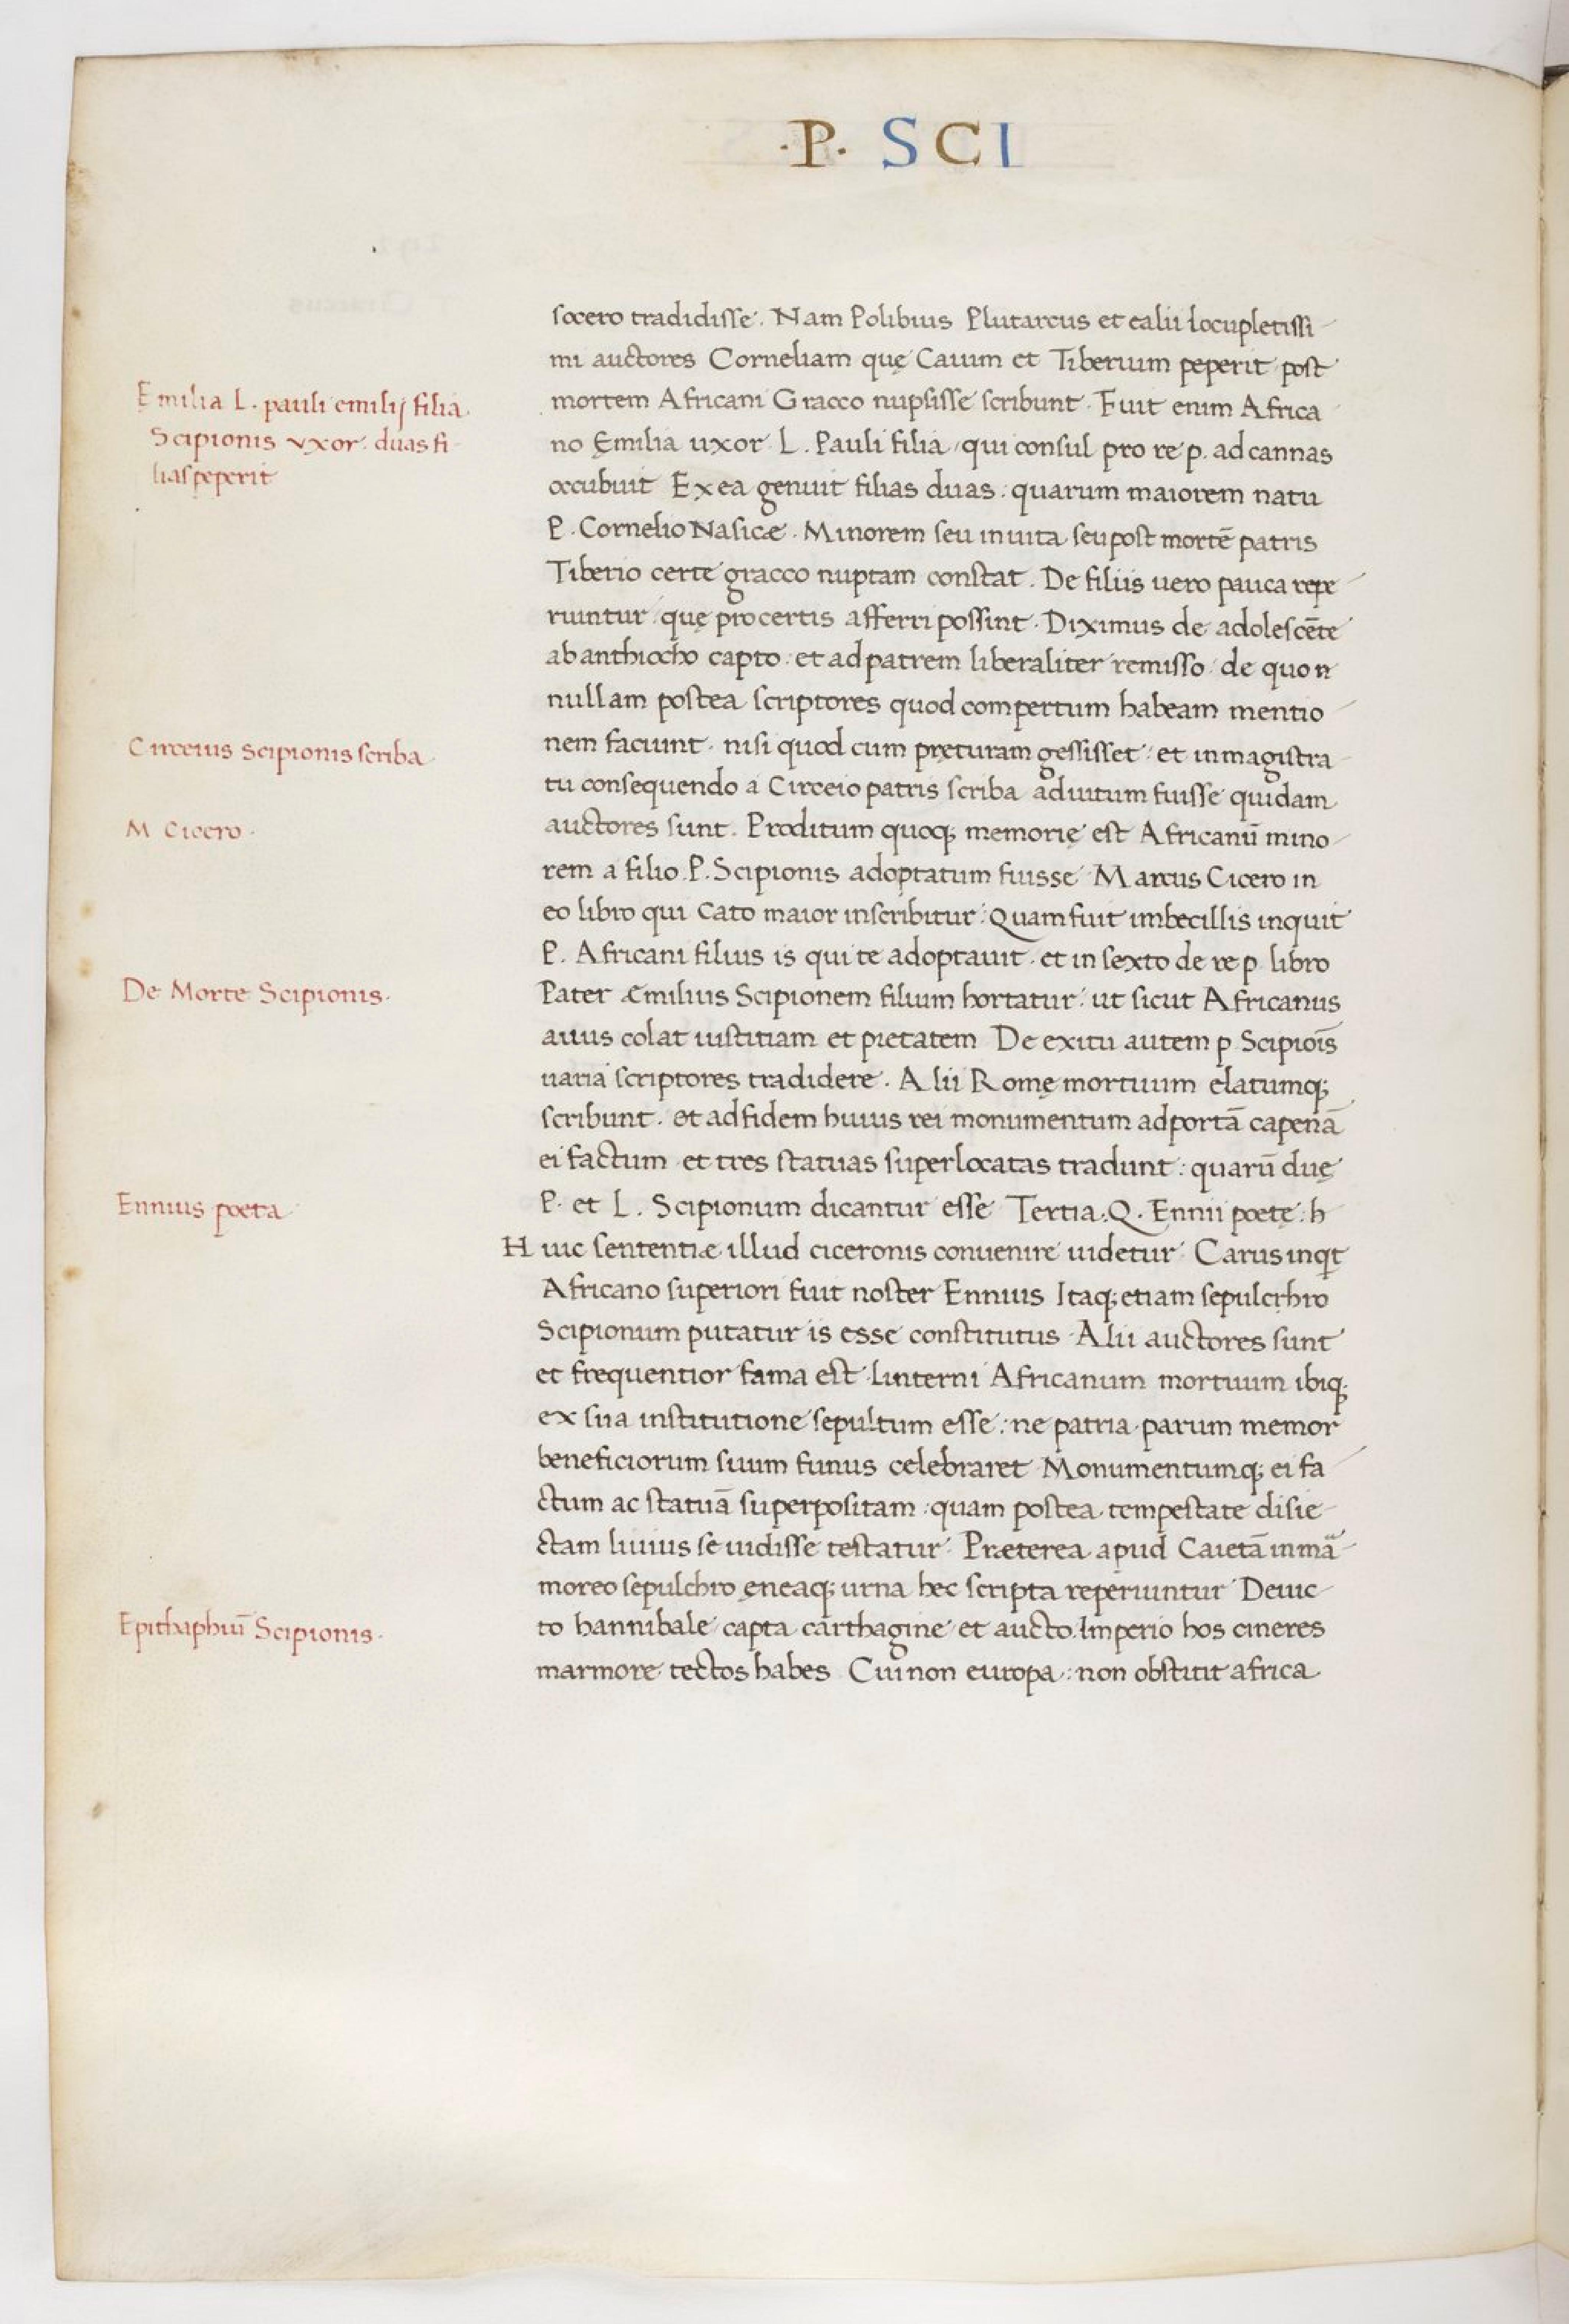 ·P· SCI
socero tradidisse. Nam Polibius Plutarcus et ealii locupletissi-
mi auctores Corneliam quę Caium et Tiberium peperit post
mortem Africani Gracco nupsisse scribunt. Fuit enim Africa
no Ęmilia uxor L. Pauli filia, qui consul pro re p. ad cannas
occubuit Ex ea genuit filias duas: quarum maiorem natu
P. Cornelio Nasicæ. Minorem seu in uita seu post mortē patris
Tiberio certe gracco nuptam constat. De filiis uero pauca repe-
riuntur quę pro certis afferri possint. Diximus de adolescēte
ab anthiocho capto: et ad patrem liberaliter remisso: de quo n
nullam postea scriptores quod compertum habeam mentio-
nem faciunt. nisi quod cum pręturam gessisset: et in magistra-
tu consequendo a Circeio patris scriba adiutum fuisse quidam
auctores sunt. Proditum quoq; memorię est Africanū mino-
rem a filio P. Scipionis adoptatum fuisse. Marcus Cicero in
eo libro qui Cato maior inscribitur: Quam fuit imbecillis inquit
P. Africani filius is qui te adoptauit. et in sexto de re p. libro
Pater Æmilius Scipionem filium hortatur: ut sicut Africanus
auus colat iustitiam et pietatem De exitu autem p Scipioīs
uaria scriptores tradidere. Alii Romę mortuum elatumq;
scribunt. et ad fidem huius rei monumentum ad portā capenā
ei factum et tres statuas superlocatas tradunt: quarū duę
P. et L. Scipionum dicantur esse Tertia. Q. Ennii poetę: h
Huic sententiæ illud ciceronis conuenire uidetur. Carus inqt
Africano superiori fuit noster Ennius Itaq; etiam sepulcrhro
Scipionum putatur is esse constitutus. Alii auctores sunt
et frequentior fama est linterni Africanum mortuum ibiq;
ex sua institutione sepultum esse: ne patria parum memor
beneficiorum suum funus celebraret Monumentumq; ei fa-
ctum ac statuā superpositam: quam postea tempestate disie-
ctam liuius se uidisse testatur. Præterea apud Caietā in mā-
moreo sepulchro ęneaq; urna hec scripta reperiuntur Deuic-
to hannibale capta carthagine et aucto Imperio hos cineres
marmore tectos habes Cui non europa: non obstitit africa
Emilia L. pauli emilij filia
Scipionis vxor. duas fi-
lias peperit
Circeius Scipionis scriba
M Cicero.
De Morte Scipionis.
Ennius poeta
Epithaphiū Scipionis.